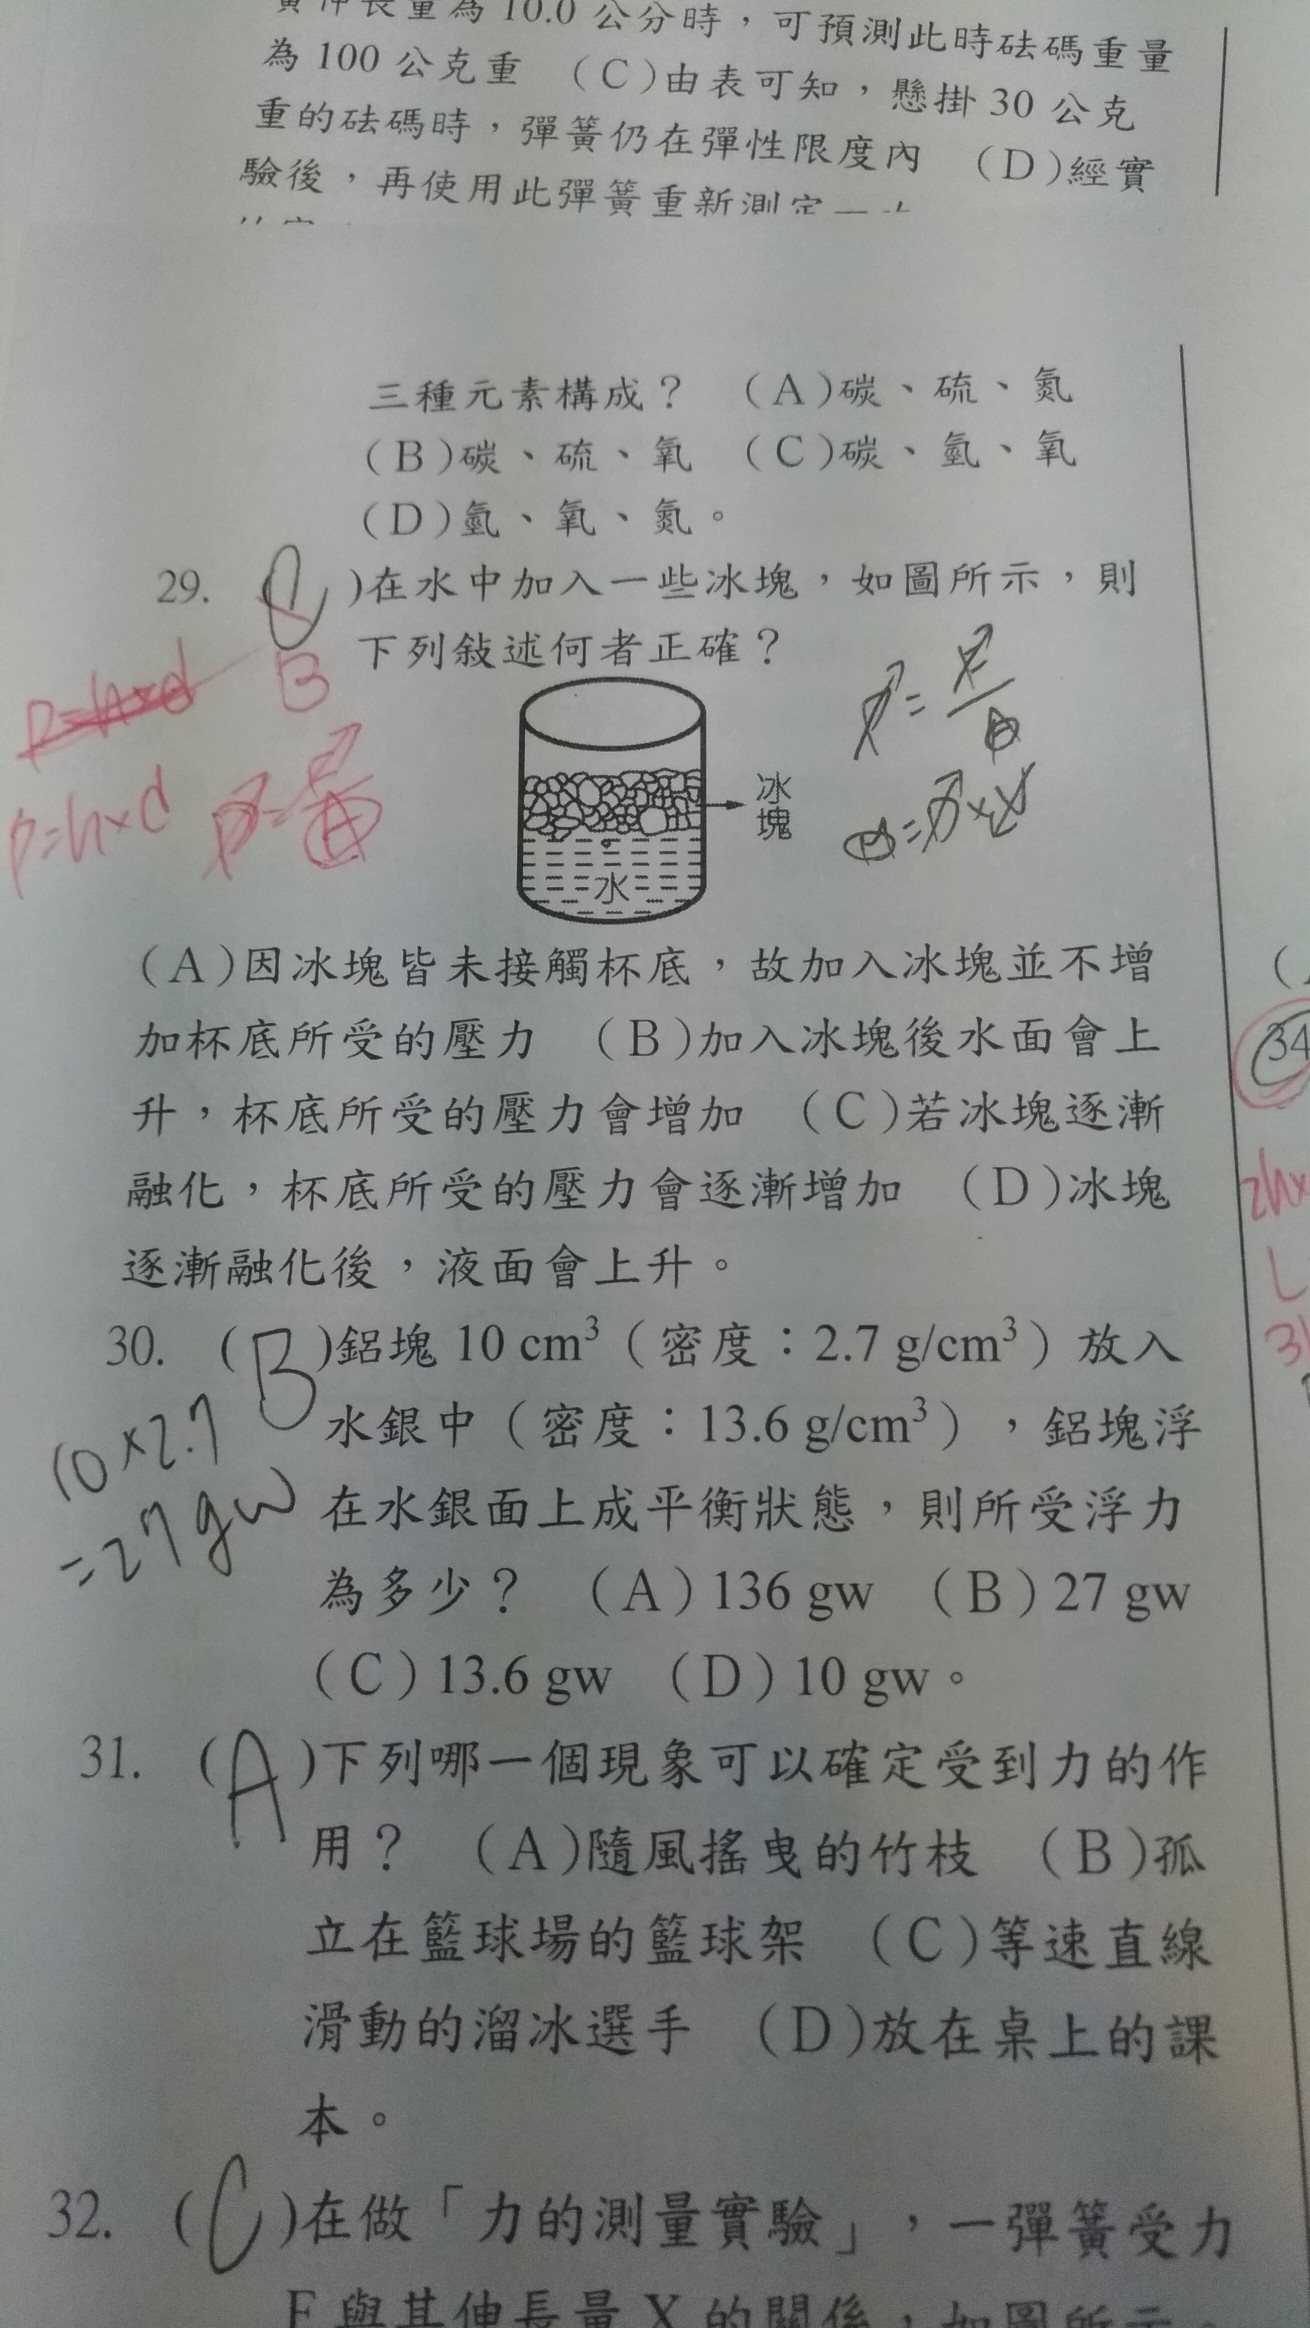 簧伸長量為 10.0 公分時，可預測此時砝碼重量
為 100 公克重 (C)由表可知，懸掛 30 公克
重的砝碼時，彈簧仍在彈性限度內 (D)經實
驗後，再使用此彈簧重新測定一
三種元素構成？ (A)碳、硫、氮
(B)碳、硫、氧 (C)碳、氫、氧
(D)氫、氧、氮。
29. (C)在水中加入一些冰塊，如圖所示，則
下列敍述何者正確？
B
P=h×d
P=h×d
P=F/A
P=F/A
冰塊
水
(A)因冰塊皆未接觸杯底，故加入冰塊並不增
加杯底所受的壓力 (B)加入冰塊後水面會上
升，杯底所受的壓力會增加 (C)若冰塊逐漸
融化，杯底所受的壓力會逐漸增加 (D)冰塊
逐漸融化後，液面會上升。
34
2h×
L
30. (B)鋁塊 10 cm³（密度：2.7 g/cm³）放入
水銀中（密度：13.6 g/cm³），鋁塊浮
在水銀面上成平衡狀態，則所受浮力
為多少？ (A) 136 gw (B) 27 gw
(C) 13.6 gw (D) 10 gw。
10×2.7
=27gw
31. (A)下列哪一個現象可以確定受到力的作
用？ (A)隨風搖曳的竹枝 (B)孤
立在籃球場的籃球架 (C)等速直線
滑動的溜冰選手 (D)放在桌上的課
本。
32. (C)在做「力的測量實驗」，一彈簧受力
F 與其伸長量 X 的關係，如圖所示。